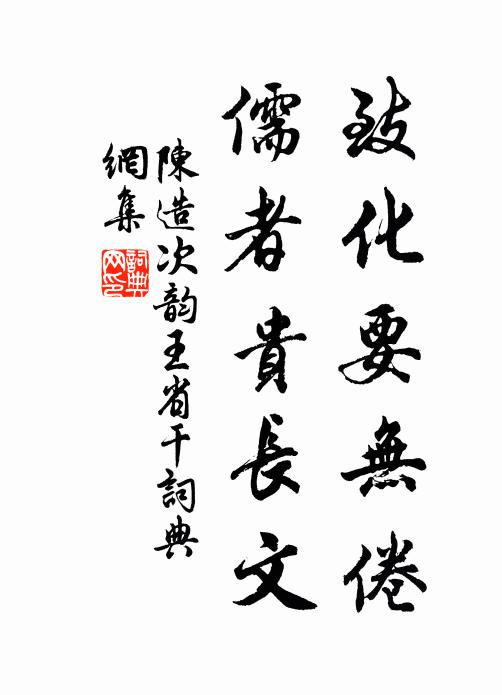 致化要無倦
儒者貴長文
陳造次韵王省干詞典
網集
詞典網印